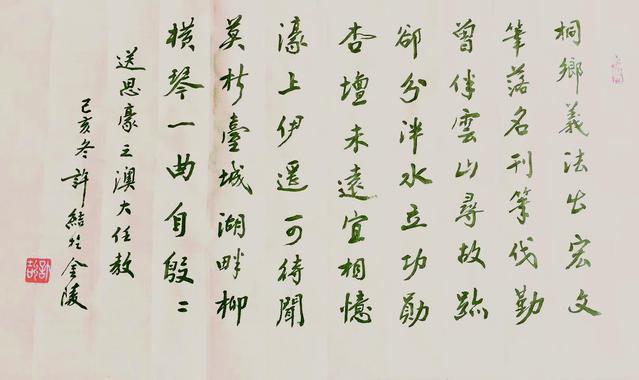 桐鄉義法出宏文
筆落名刊筆伐勤
曾伴雲山尋故跡
卻分泮水立功勛
杏壇未遠宜相憶
濠上伊遥可待聞
莫折臺城湖畔柳
横琴一曲自殷〻
送思豪之澳大任教
己亥冬許結於金陵